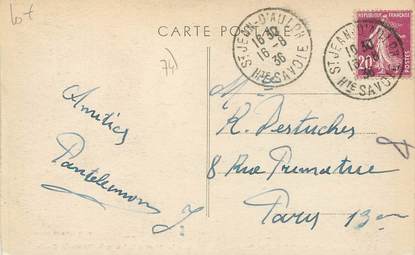 lot
CARTE POSTALE
74)
ST JEAN-D'AULPH
16 30
16-8
36
HTE SAVOIE
RÉPUBLIQUE FRANÇAISE
20c
POSTES
ST JEAN-D'AULPH
16 30
16-8
36
HTE SAVOIE
M.
R. Destuches
8 Rue Primatice
Paris 13em
Amitiés
Pantaleimon